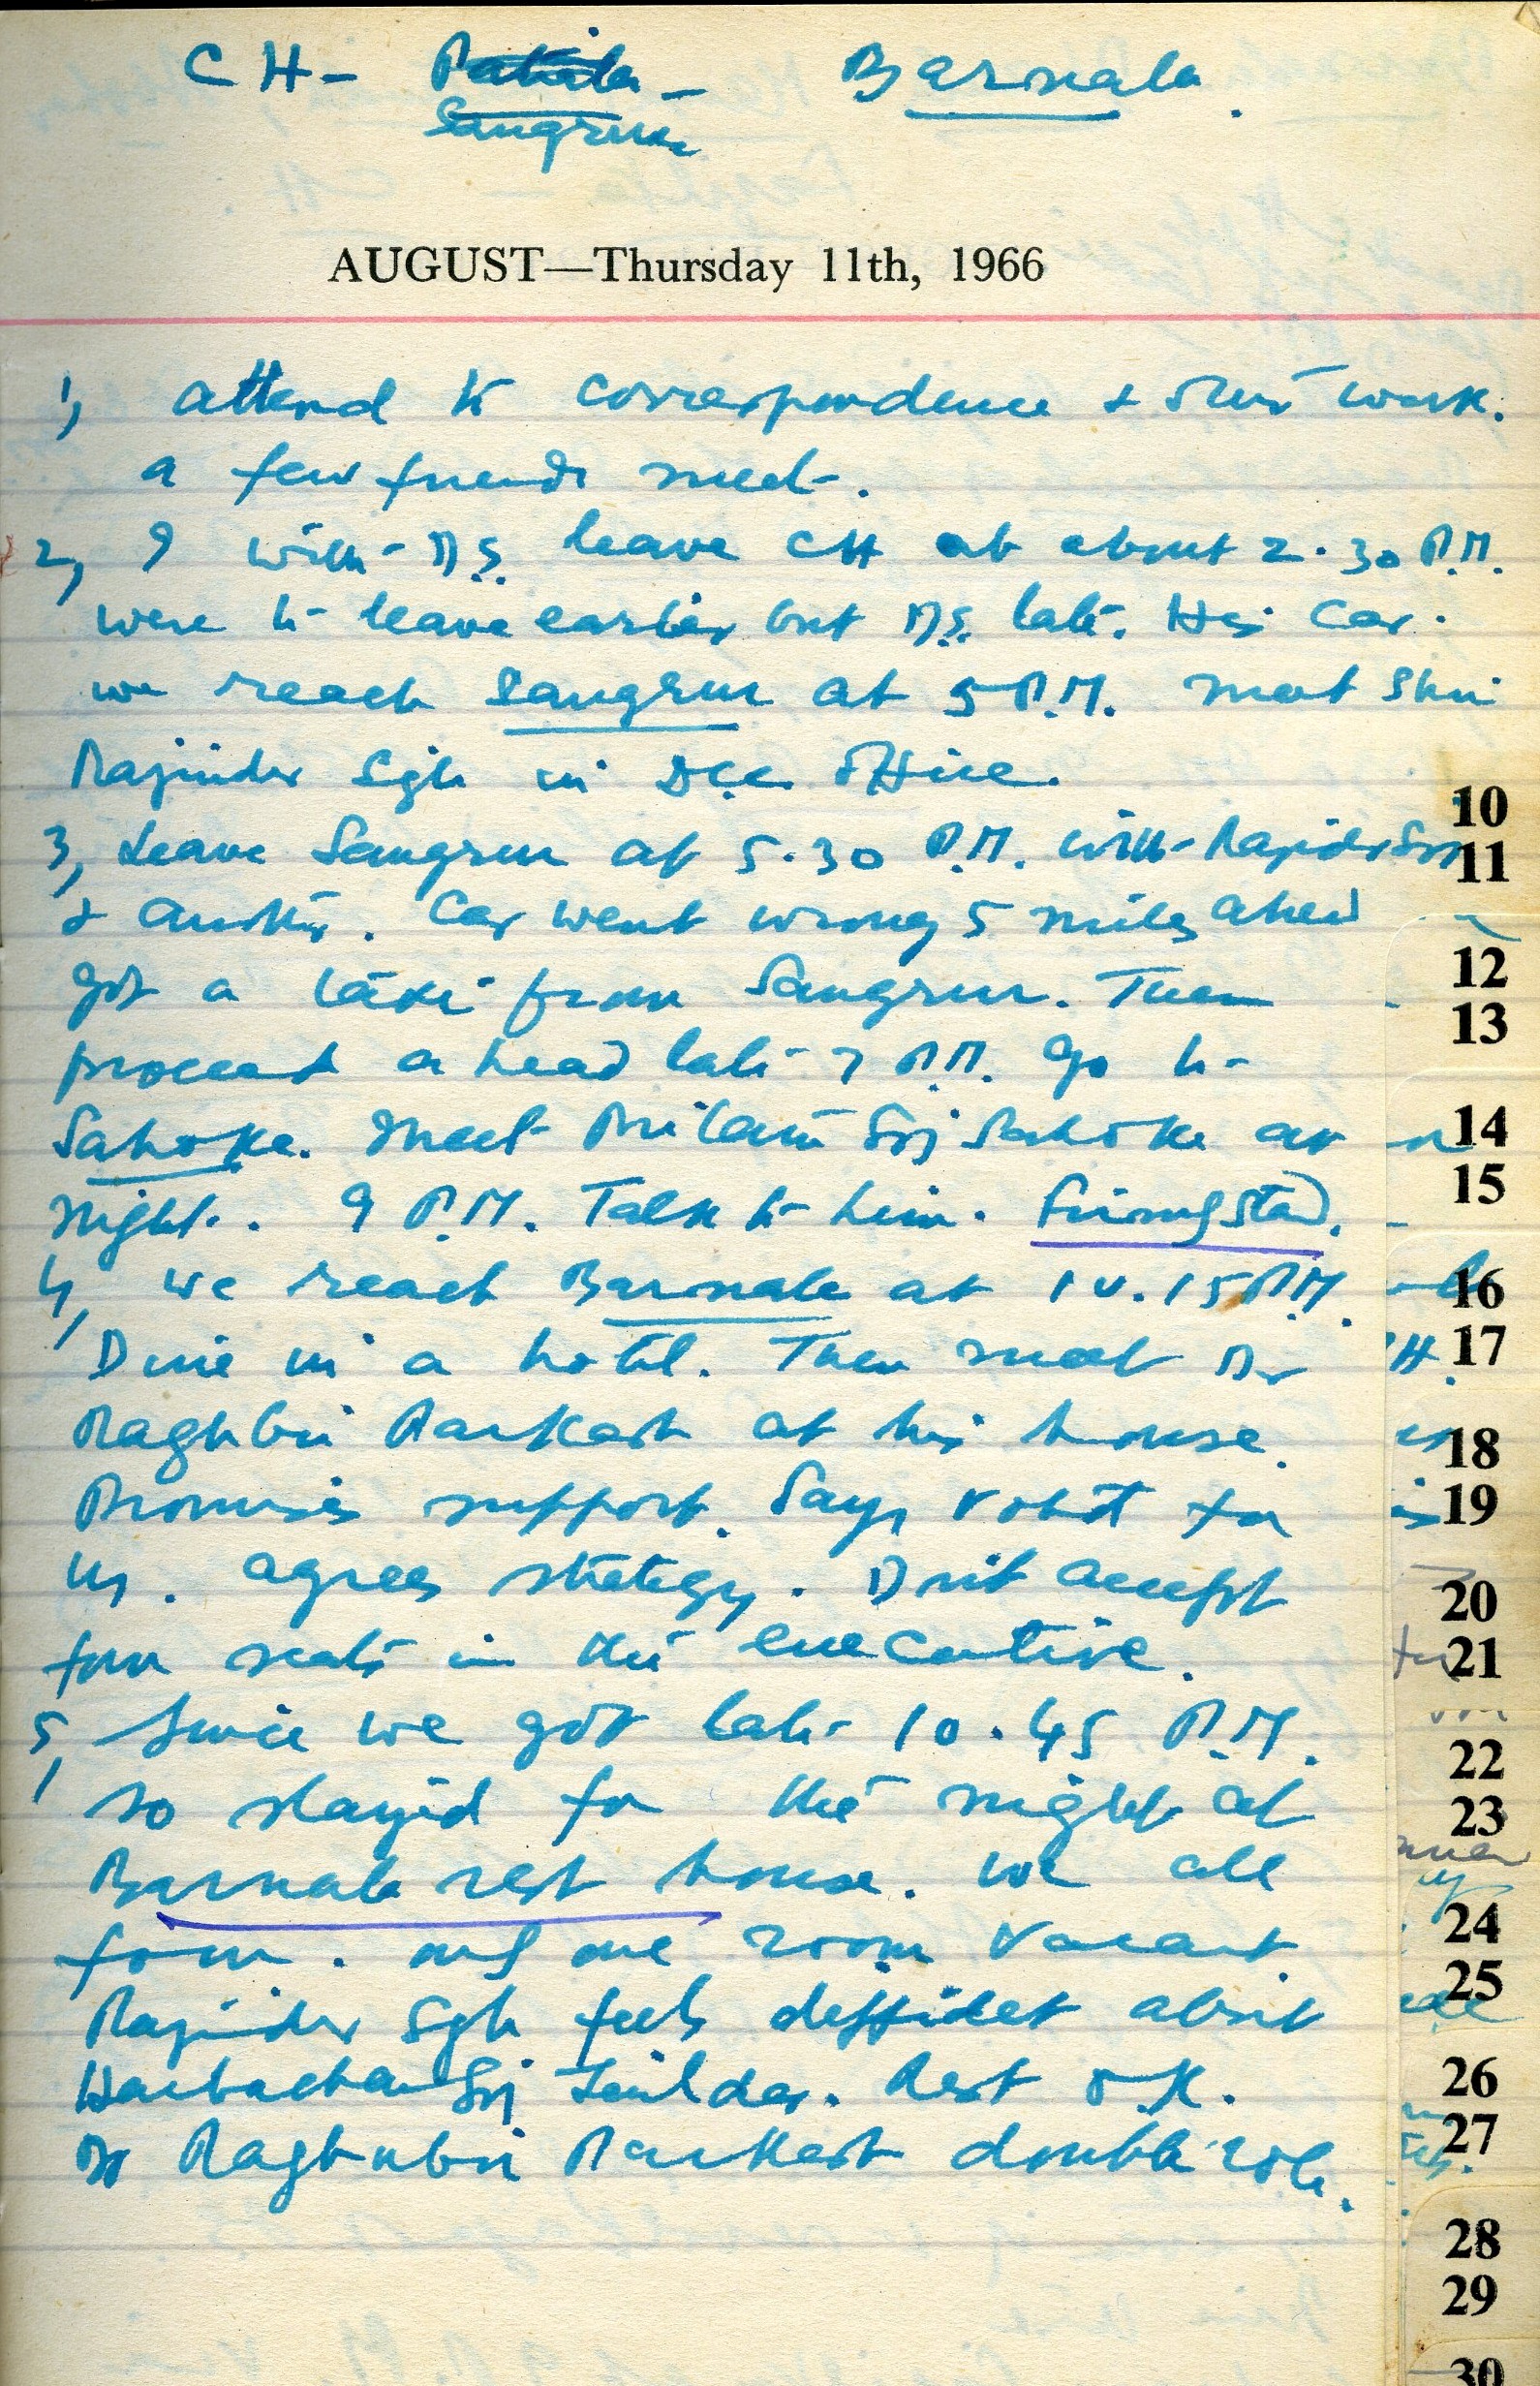 CH - Patiala -  Barnala.
Sangrur
AUGUST—Thursday 11th, 1966
1, attend to correspondence + other work.
a few friends meet.
2, I with D.S. leave CH at about 2.30 P.M.
were to leave earlier but D.S. late. His Car.
we reach Sangrur at 5 P.M. meet Shri
Rajinder Sgh in Dcc office.
3, Leave Sangrur at 5.30 P.M. with Rajinder
+ another. Car went wrong 5 miles ahead
got a taxi from Sangrur. Then
proceed ahead late 7 P.M. go to
Sahoke. Meet Pritam Sgj Sahoke at
night. 9 P.M. Talk to him. stand.
4, we reach Barnala at 10.15 P.M.
Dine in a hotel. Then meet Dr
Raghbir Parkash at his house.
Promises support. Says for
us. agrees strategy. Don't accept
four seats in the executive.
5, Since we got late 10.45 P.M.
so stayed for the night at
Barnala rest house. we all
four. only one room vacant.
Rajinder Sgh feels deffident about
Harbachan Sgj. Rest O.K.
Dr Raghubir Parkash double role.
10
11
12
13
14
15
16
17
18
19
20
21
22
23
24
25
26
27
28
29
30